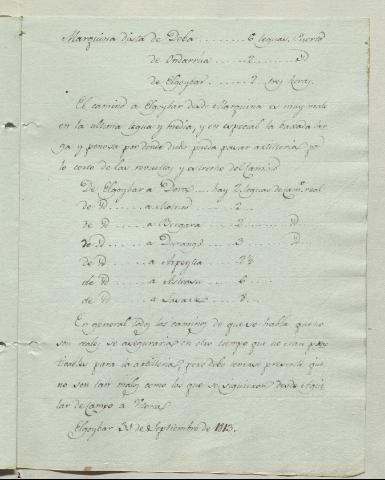 Marquina dista de Deba ......... 6 leguas. Puerto
de Ondarrúa ...... 2 ...... id
de Elgoybar ...... 2 tres horas.
El camino a Elgoybar desde Marquina es muy malo
en la ultima legua y media, y en especial la baxada lar
ga y penosa por donde dudo pueda pasar artilleria, por
lo corto de las revueltas y estrecho del camino
De Elgoybar a Deva .... hay 2 leguas de cam.º real
de id ...... a Motrico ...... 2
de id ...... a Bergara ...... 2 ...... id
de id ...... a Durango ...... 3 ...... id
de id ...... a Azpeytia ...... 2½
de id ...... a Asteasu ...... 6
de id ...... a ...... 8
En general todos los caminos de que se habla que no
son reales, se aseguraran en otro tiempo que no eran prac
ticables para la artilleria; pero debo tener presente que
no son tan malos como los que se siguieron desde
lar de Campo a Vitoria.
Elgoybar 3 de Septiembre de 1813.